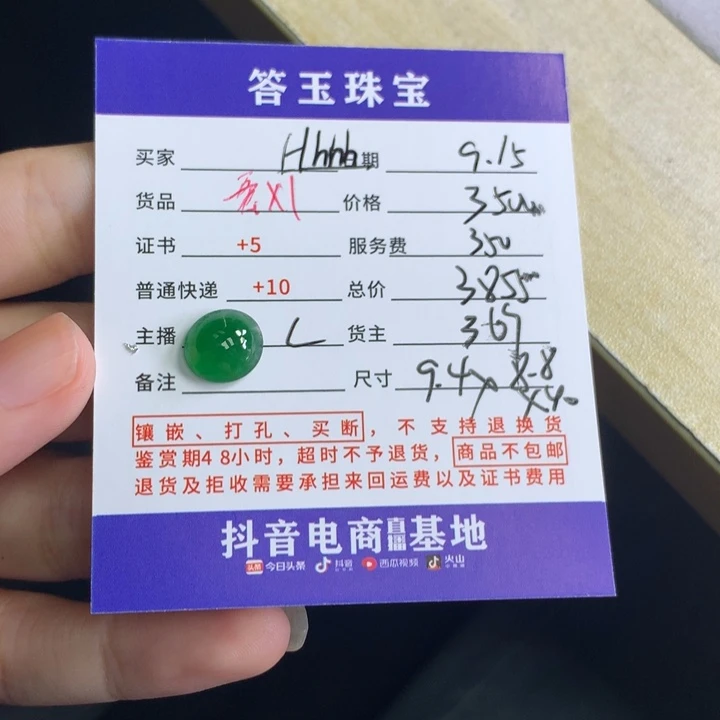 答玉珠宝
买家 Hhhh 日期 9.15
货品 蛋X1 价格 3500
证书 +5 服务费 350
普通快递 +10 总价 3855
主播 L 货主 369
备注 尺寸 9.4X8.8X4.0
镶嵌、打孔、买断，不支持退换货
鉴赏期48小时，超时不予退货，商品不包邮
退货及拒收需要承担来回运费以及证书费用
抖音电商直播基地
头条 今日头条 抖音 西瓜视频 火山